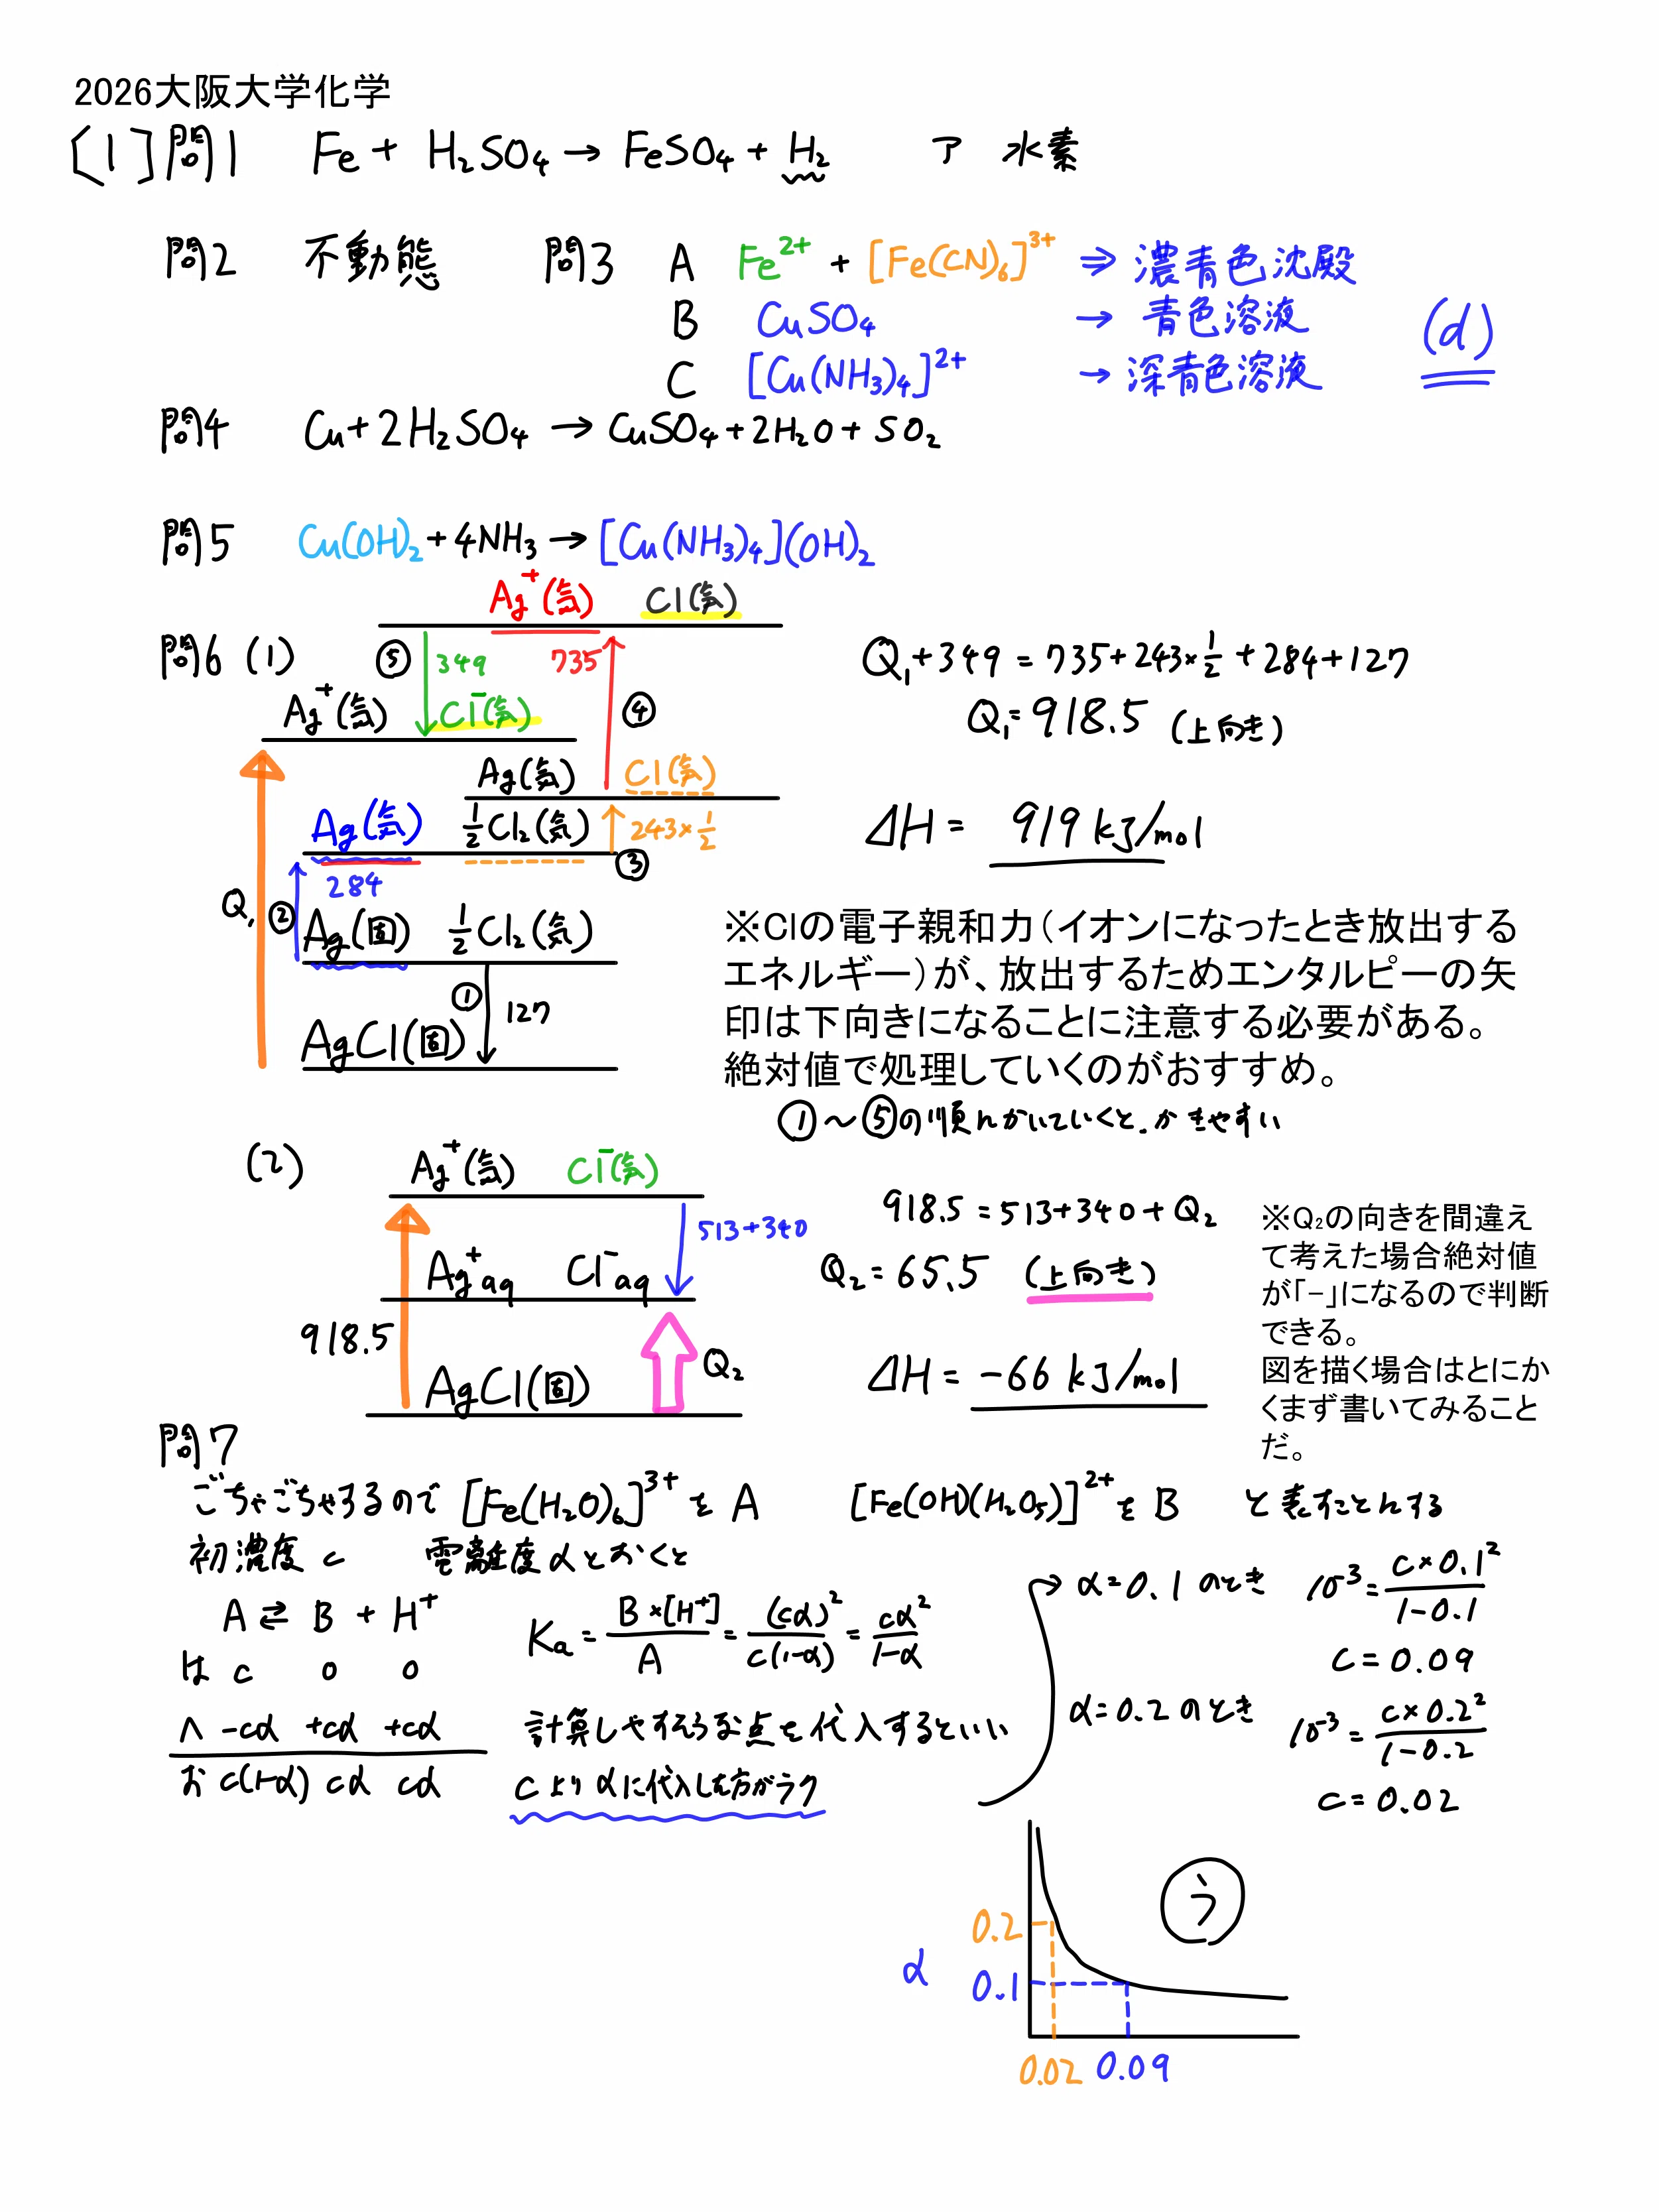 2026大阪大学化学
[1] 問1 Fe + H₂SO₄ → FeSO₄ + H₂ ア 水素
問2 不動態 問3 A Fe²⁺ + [Fe(CN)₆]³⁺ ⇒ 濃青色沈殿
B CuSO₄ → 青色溶液 (d)
C [Cu(NH₃)₄]²⁺ → 深青色溶液
問4 Cu + 2H₂SO₄ → CuSO₄ + 2H₂O + SO₂
問5 Cu(OH)₂ + 4NH₃ → [Cu(NH₃)₄](OH)₂
Ag⁺(気) Cl(気)
問6 (1) ⑤ 349 735
Ag⁺(気) Cl⁻(気) ④
Ag(気) Cl(気)
Ag(気) ½Cl₂(気) 243×½
③
284
Q₁ ② Ag(固) ½Cl₂(気)
① 127
AgCl(固)
Q₁+349 = 735+243×½+284+127
Q₁=918.5 (上向き)
ΔH = 919 kJ/mol
※Clの電子親和力(イオンになったとき放出する
エネルギー)が、放出するためエンタルピーの矢
印は下向きになることに注意する必要がある。
絶対値で処理していくのがおすすめ。
①～⑤の順にかいていくと.かきやすい
(2) Ag⁺(気) Cl⁻(気)
513+340
Ag⁺aq Cl⁻aq
918.5
AgCl(固) Q₂
918.5 = 513+340+Q₂
Q₂ = 65.5 (上向き)
ΔH = -66 kJ/mol
※Q₂の向きを間違え
て考えた場合絶対値
が「-」になるので判断
できる。
図を描く場合はとにか
くまず書いてみること
だ。
問7
ごちゃごちゃするので [Fe(H₂O)₆]³⁺ を A [Fe(OH)(H₂O₅)]²⁺ を B と表すことにする
初濃度 c 電離度 α とおくと
A ⇄ B + H⁺
は c 0 0
へ -cα +cα +cα
お c(1-α) cα cα
Ka = B×[H⁺]/A = (cα)²/c(1-α) = cα²/1-α
計算しやすそうな点を代入するといい
c より αに代入した方がラク
α=0.1 のとき 10⁻³ = c×0.1²/1-0.1
c = 0.09
α=0.2 のとき 10⁻³ = c×0.2²/1-0.2
c = 0.02
う
0.2
α 0.1
0.02 0.09